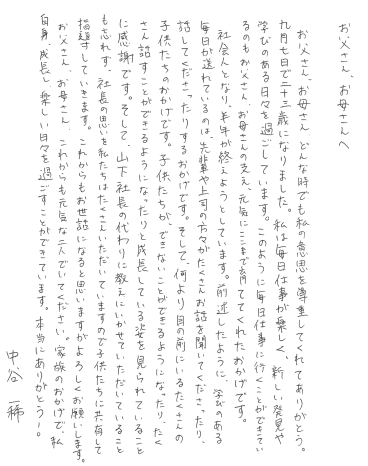 お父さん、お母さんへ
お父さん、お母さん どんな時でも私の意思を尊重してくれてありがとう。
九月七日で二十三歳になりました。私は毎日仕事が楽しく、新しい発見や
学びのある日々を過ごしています。このように毎日仕事に行くことができてい
るのもお父さん、お母さんの支え、元気にここまで育ててくれたおかげです。
社会人となり、半年が終えようとしています。前述したように、学びのある
毎日が送れているのは、先輩や上司の方々がたくさんお話を聞いてくださったり、
話してくださったりするおかげです。そして、何より目の前にいるたくさんの
子供たちのおかげです。子供たちが、できないことができるようになったり、たく
さん話すことができるようになったりと成長している姿を見られていること
に感謝です。そして、山下社長の代わりに教えにいかせていただいていること
も忘れず、社長の思いを私たちはたくさんいただいていますので子供たちに共有して
指導していきます。これからもお世話になると思いますがよろしくお願いします。
お父さん、お母さん、これからも元気な二人でいてください。家族のおかげで、私
自身、成長し、楽しい日々を過ごすことができています。本当にありがとう！。
中谷 一稀